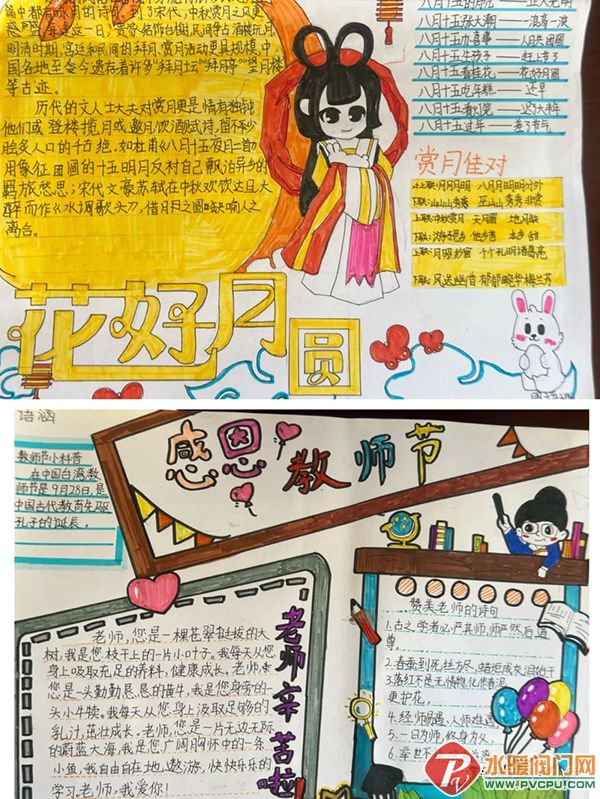 到了宋代，中秋赏月之风更
明清时期，宫廷和民间的拜月、赏月活动更具规模，中
国各地至今遗存着许多"拜月坛""拜月亭""望月楼"
等古迹。
历代的文人士大夫对赏月更是情有独钟
他们或登楼揽月或邀月饮酒赋诗，留不少
脍炙人口的千古绝。如杜甫《八月十五夜月》一首
用象征团圆的十五明月反衬自己飘泊异乡的
羁旅愁思；宋代文豪苏轼在中秋欢饮达旦大
醉而作《水调歌头》，借月月之圆缺喻人之
离合。
八月十五涨大潮——一浪高一浪
八月十五办喜事——人月共团圆
八月十五生孩子——赶上节了
八月十五看桂花——花好月圆
八月十五吃年糕——还早
八月十五看龙灯——迟了大半年
八月十五过年——差了节气
赏月佳对
上联：月月月明 八月月明明分外
下联：山山山秀 巫山山秀秀非常
上联：中秋赏月 天月圆 地月缺
下联：游子思乡 他乡苦 本乡甜
上联：月照纱窗 个个孔明诸葛亮
下联：风送幽香 郁郁畹华梅兰芳
花好月圆
语涵
感恩教师节
教师节小科普
在中国台湾，教
师节是9月28日，是
中国古代教育先驱
孔子的诞辰。
老师，您是一棵苍翠挺拔的大
树，我是您枝干上的一片小叶子。我每天从您
身上吸取充足的养料，健康成长。老师，
您是一头勤勤恳恳的黄牛，我是您身旁的一
头小牛犊。我每天从您身上汲取足够的
乳汁，茁壮成长。老师，您是一片无边无际
的蔚蓝大海，我是您广阔胸怀中的一条
小鱼，我自由自在地遨游，快快乐乐的
学习，老师，我爱你！
老师辛苦啦！
赞美老师的诗句
1.古之学者必严其师，师严然后道
尊。
2.春蚕到死丝方尽，蜡炬成灰泪始干
3.落红不是无情物，化作春泥
更护花。
4.经师易遇，人师难遇
5.一日为师，终身为父。
水暖阀门网
WWW.PVCPU.COM